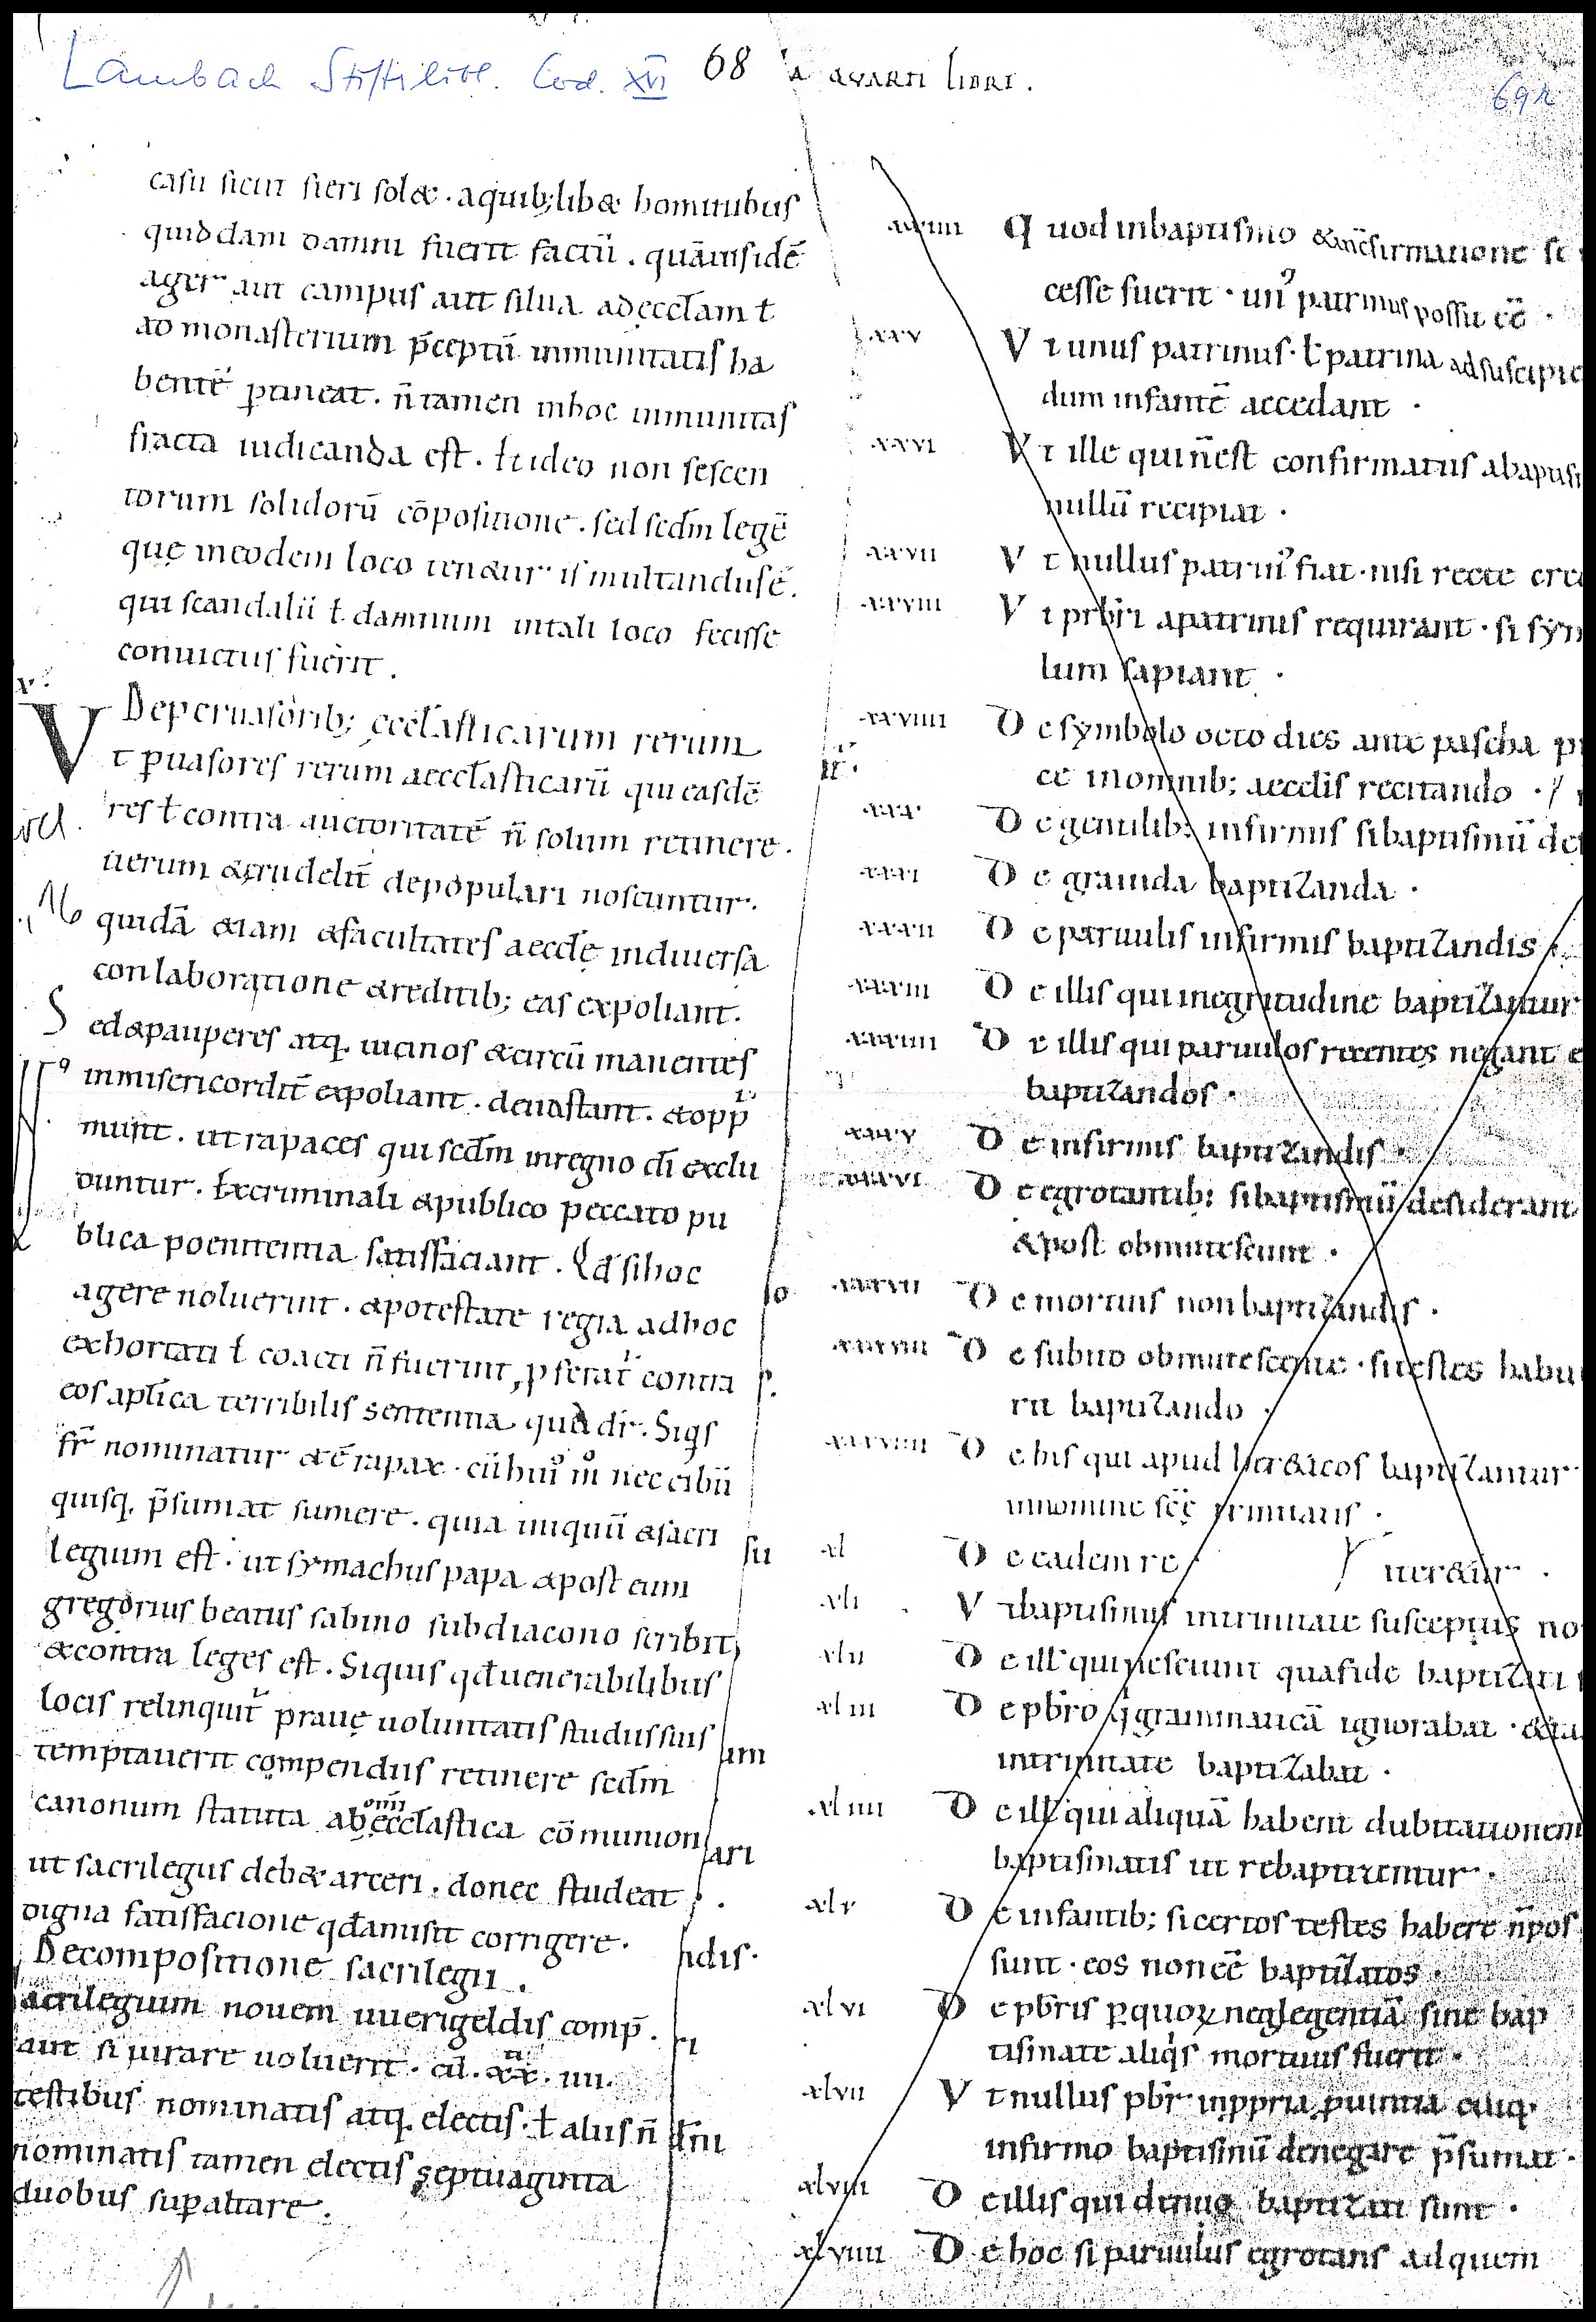 Lambach Stiftsbibl. Cod. XVI 68 a QVARTI LIBRI .
69r
casu sicut fieri sol& . a quib; lib& hominibus
quiddam damni fuerit factū . quāuis idē
ager aut campus aut silua ad eccłam ł
ad monasterium p̄ceptū inmunitatis ha
bentē ꝑtineat . n̄ tamen in hoc inmunitas
fracta iudicanda est . & ideo non sescen
torum solidorū cōpositione . sed scdm legē
quę in eodem loco ten&ur is multandus ē .
qui scandalū ł damnum in tali loco fecisse
conuictus fuerit .
x .
De peruasorib; ęccłasticarum rerum
Vt ꝑuasores rerum aeccłasticarū qui easdē
res ł contra auctoritatē n̄ solum retinere .
uel .
uerum & crudelit̄ depopulari noscuntur .
quidā &iam & facultates aecclę in diuersa
conlaboratione & reditib; eas expoliant .
Sed & pauperes atq. uicinos & circū manentes
inmisericordit̄ expoliant . deuastant . & opp̍
munt . ut rapaces qui scdm in regno dī exclu
duntur . & criminali & publico peccato pu
blica poenitentia satisfaciant . Qđ si hoc
agere noluerint . & potestate regia ad hoc
exhortati ł coacti n̄ fuerint , ꝓferat̄ contra
eos aptīca terribilis sententia qua dr̄ . Siq̍s
fr̄ nominatur & ē rapax . cū hui᾽ m̊ nec cibū
quisq. p̄sumat sumere . quia iniquū & sacri
legium est . ut symachus papa & post eum
gregorius beatus sabino subdiacono scribit ,
& contra leges est . Si quis qđ uenerabilibus
locis relinquit̄ prauę uoluntatis studiis suis
temptauerit compendiis retinere scdm
canonum statuta ab omī ęccłastica cōmunion
ut sacrilegus deb& arceri . donec studeat
digna satisfacione qđ amisit corrigere .
De compositione sacrilegii .
acrilegium nouem uuerigeldis comp̄ .
aut si iurare uoluerit . cū . xx . iiii .
testibus nominatis atq. electis . ł aliis n̄
nominatis tamen electis septuaginta
duobus sup altare .
so
s .
su
um
ari
ndis .
ri
dñi
xxiiii Quod in baptismo & in cōfirmatione si
cesse fuerit . un᾽ patrinus possit eē .
xxv Vt unus patrinus . ł patrina ad suscipie
dum infantē accedant .
xxvi Vt ille qui n̄ est confirmatus a baptis
nullū recipiat .
xxvii Vt nullus patrin᾽ fiat . nisi recte cre
xxviii Vt prbr̄i a patrinis requirant . si sym
lum sapiant .
xxviiii De symbolo octo dies ante pascha p
ce in omnib; aecclis recitando .
xxx De gentilib; infirmis si baptismū de
xxxi De grauida baptizanda .
xxxii De paruulis infirmis baptizandis .
xxxiii De illis qui in egritudine baptizantur
xxxiiii De illis qui paruulos recentes negant e
baptizandos .
xxxv De infirmis baptizandis .
xxxvi De egrotantib; si baptismū desiderant
& post obmutescunt .
xxxvii De mortuis non baptizandis .
xxxviii De subito obmutescente . si testes habu
rit baptizando .
xxxviiii De his qui apud her&icos baptizantur
in nomine scę trinitatis .
xl De eadem re . iter&ur .
xli Vt baptismus in trinitate susceptus no
xlii De ill᾽ qui nesciunt qua fide baptizati
xliii De pbr̄o q̍ grammaticā ignorabat . &
in trinitate baptizabat .
xliiii De ill᾽ qui aliquā habent dubitationem
baptismatis ut rebaptizentur .
xlv De infantib; si certos testes habere n̄ pos
sunt . eos non eē baptizatos .
xlvi De pbr̄is ꝑ quoꝝ neglegentiā sine bap
tismate aliq̍s mortuus fuerit .
xlvii Vt nullus pbr̄ in ꝓpria ꝓuintia cuiq.
infirmo baptismū denegare p̄sumat .
xlviii De illis qui denuo baptizati sunt .
xlviiii De hoc si paruulus egrotans ad quem